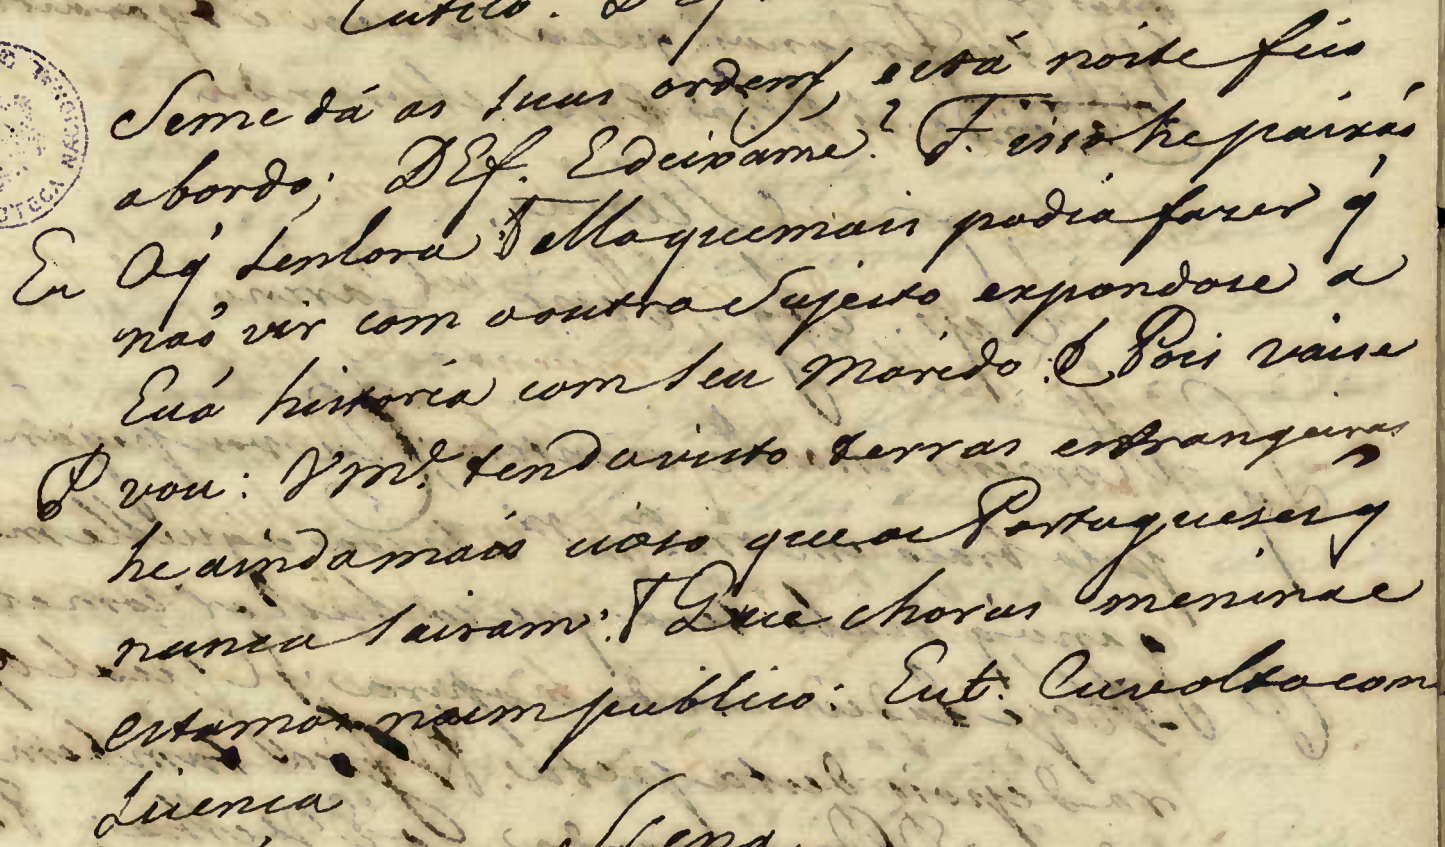 Seme dá as suas ordens, está noite fico
abordo; DEf. Edeixame? F. isso he paixão
Eu Oq̃ senhora F ella quemais podia fazer q̃
naõ vir com aoutra Sujeito expondose a
Euá historia com seu Marido: P Pois vaise
P vou: Vm.ᵉ tendo visto terras estrangeiras
he aindamais que os Portugueses q̃
nunca sairam: F Que choras menina e
estamos publico: Eut. Cuvolto com
Licenca
Sena